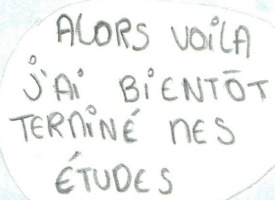 ALORS VOILA
J'AI BIENTÔT
TERMINÉ MES
ÉTUDES